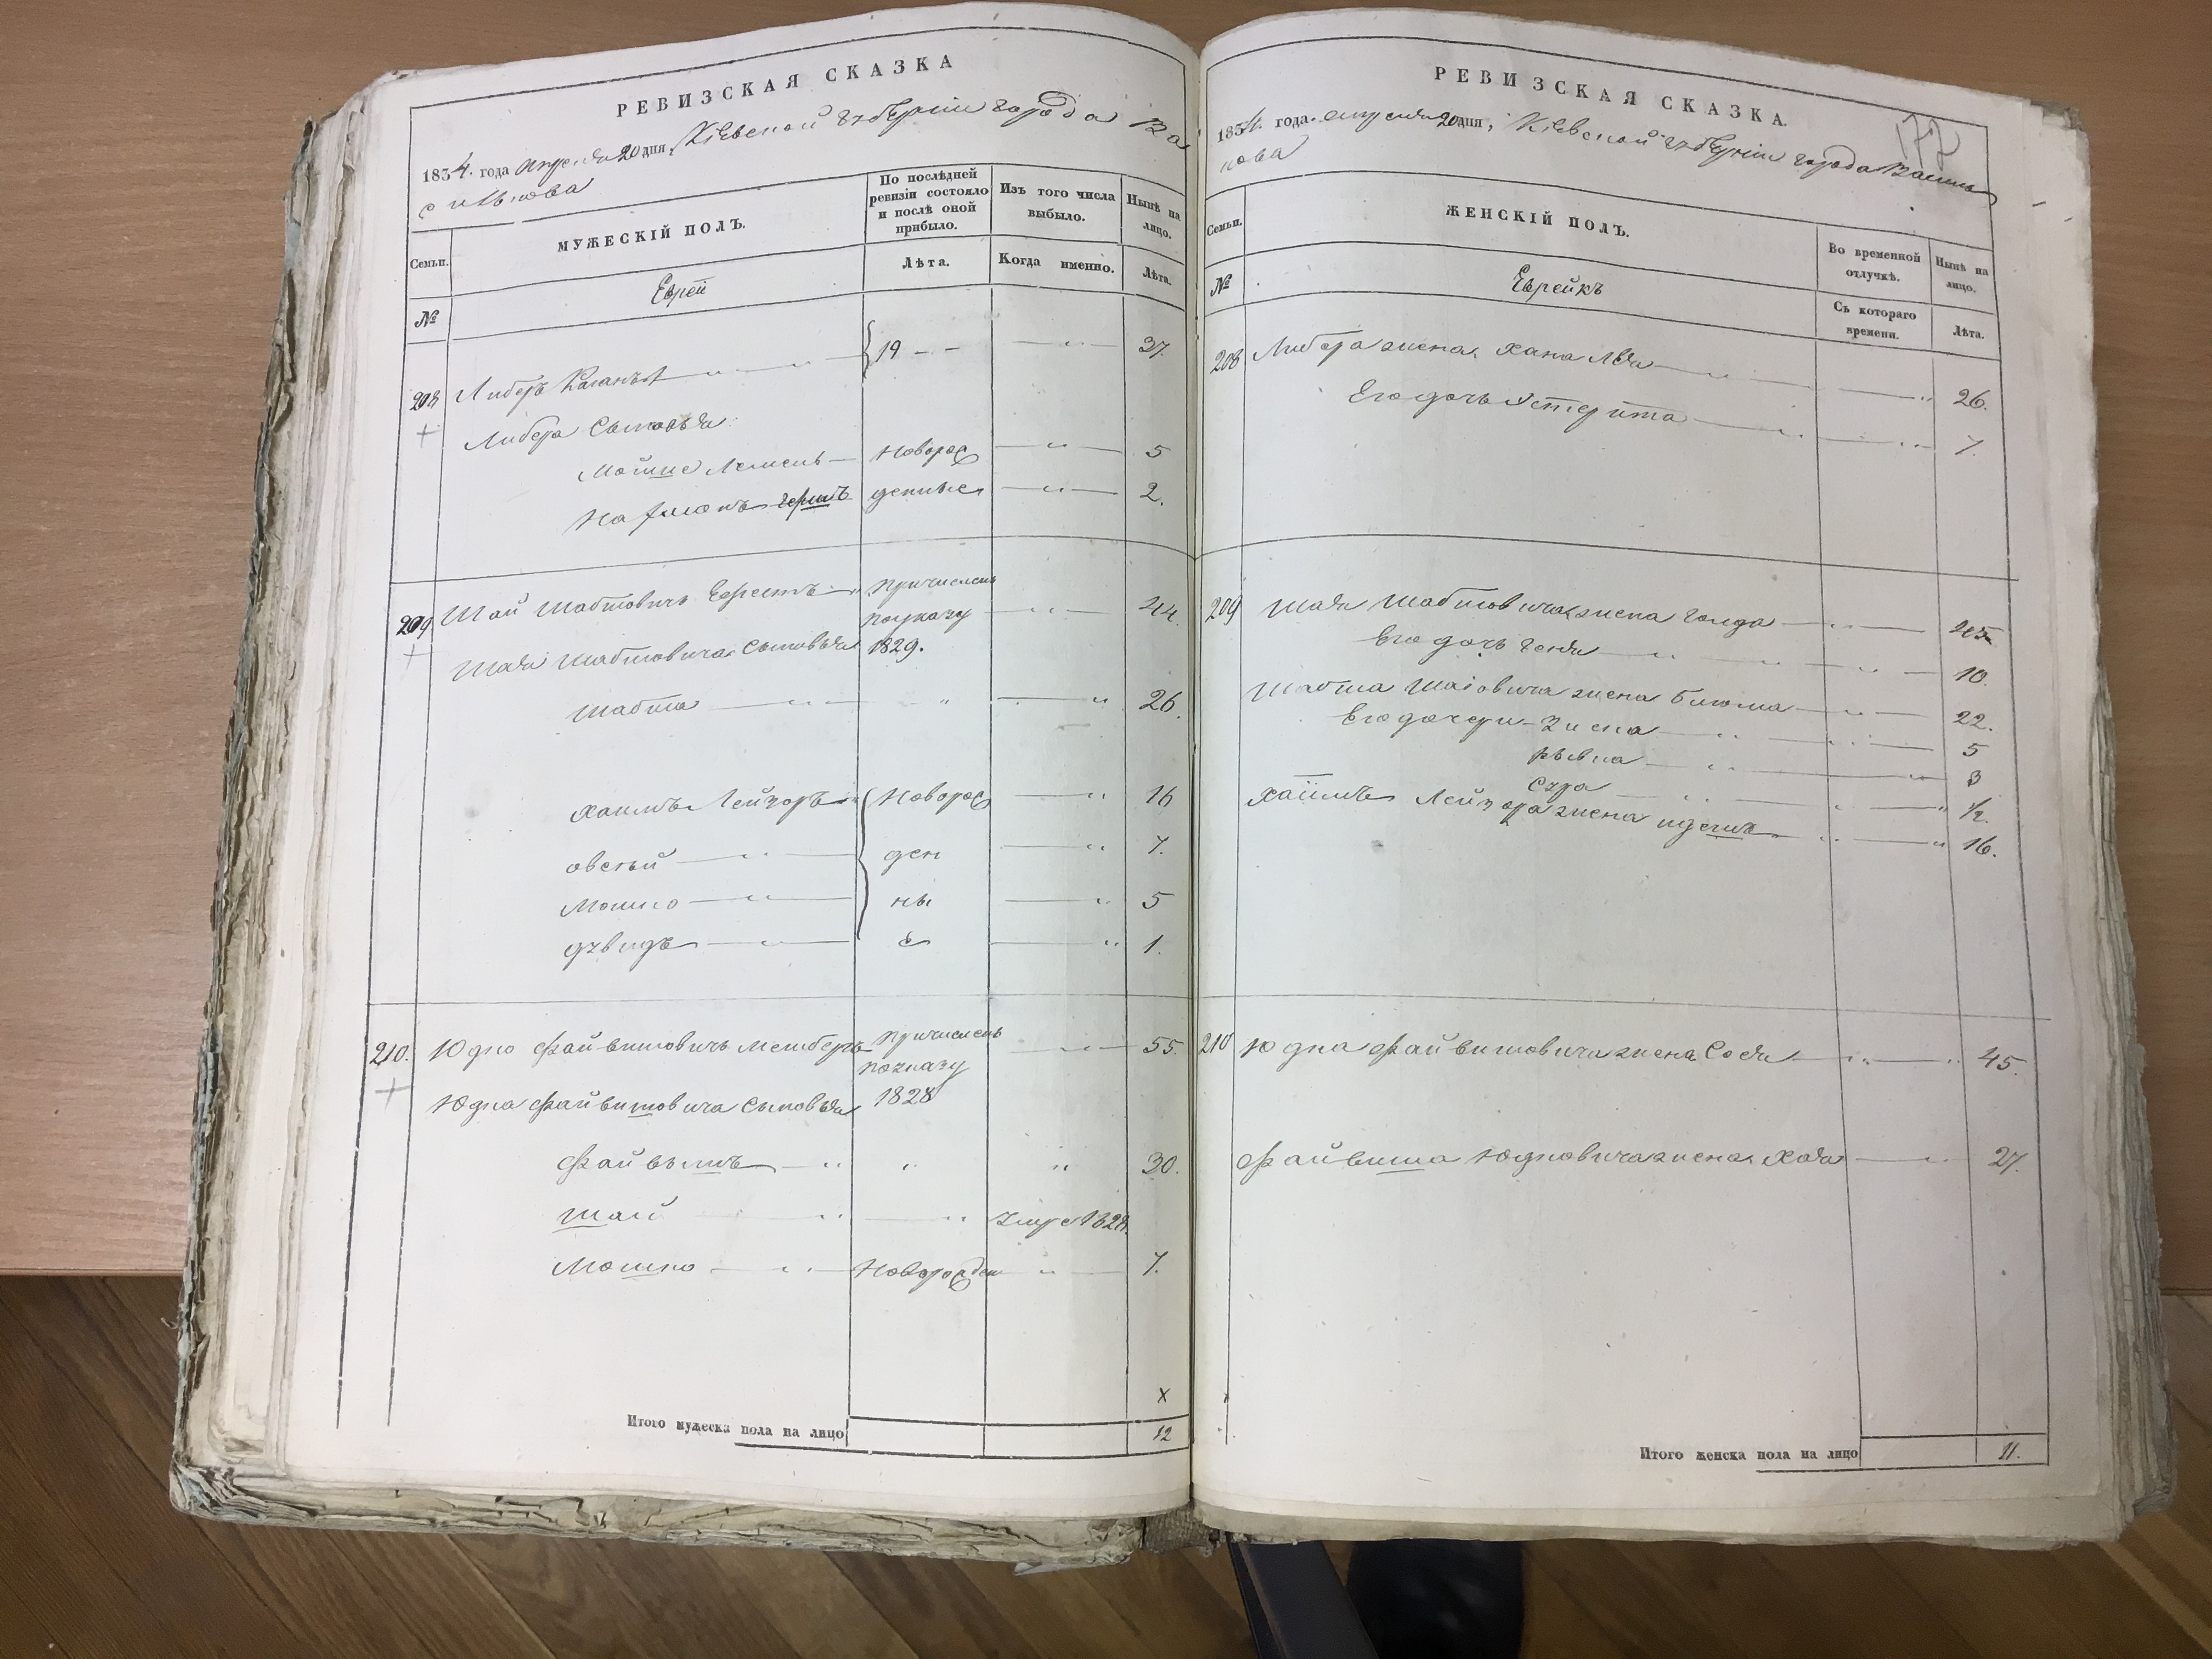 РЕВИЗСКАЯ СКАЗКА
1834. года Апреля 20 дня, Кіевской Губерніи города Ва
силькова
Семьи.
МУЖЕСКІЙ ПОЛЪ.
По послѣдней ревизіи состояло и послѣ оной прибыло.
Изъ того числа выбыло.
Нынѣ на лицо.
№
Еврей
Лѣта.
Когда именно.
Лѣта.
208 Либеръ Каганъ 19 37.
Либера Сыновья
Мошие Новорож 5
герш денные 2.
209 Шай Шабшовичъ причисленъ
по указу 44.
Шаи Шабшовича Сыновья 1829.
Шабша 26.
Хаимъ Лейзоръ Новорож 16
овсей ден 7.
Мошко ны 5
давидъ е 1.
210. Юдко Файвишовичъ причисленъ 55.
по указу
Юдка Файвишовича Сыновья 1828
Файвишъ 30.
Шай Умре 1828.
Мошко Новорожден 7.
Х
Итого мужеска пола на лицо 12
РЕВИЗСКАЯ СКАЗКА.
172
1834. года. апреля 20 дня, Кіевской Губерніи города Василь
кова
Семьи.
ЖЕНСКІЙ ПОЛЪ.
Во временной отлучкѣ.
Нынѣ на лицо.
№
Еврейкъ
Съ котораго времени.
Лѣта.
208 Либера жена Хана Лея 26.
Его дочь 7.
209 Шаи Шабшовича жена Голда 45
Его дочь Геня 10.
Шабша Шаіовича жена 22.
Его дочери 5
Ривка 3
Сура ½.
Хаимъ Лейзора жена 16.
210 Юдка Файвишовича жена Сося 45.
Файвиша Юдковича жена Хая 27.
Итого женска пола на лицо 11.